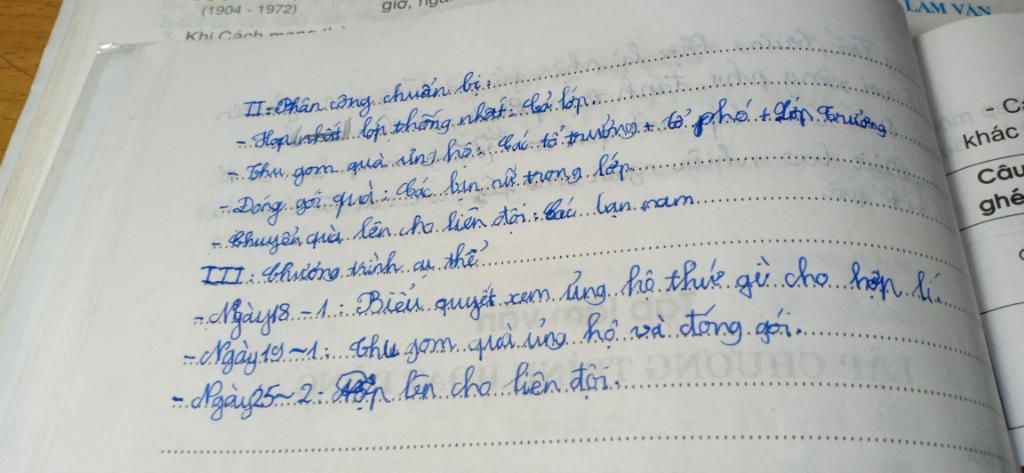 (1904 - 1972)
giờ,
Khi Cách mạng
LÀM VĂN
II - Phân công chuẩn bị.
- Họp lớp thống nhất: Cả lớp.
- Thu gom quà ủng hộ: Các tổ trưởng + tổ phó + Lớp Trưởng
- Đóng gói quà: Các bạn nữ trong lớp
- Chuyển quà lên cho liên đội: Các bạn nam
III: Chương trình cụ thể
- Ngày 18 - 1: Biểu quyết xem ủng hộ thứ gì cho hợp lí.
- Ngày 19 ~ 1: Thu gom quà ủng hộ và đóng gói.
- Ngày 25 ~ 2: Nộp lên cho liên đội.
khác
Câu
ghé